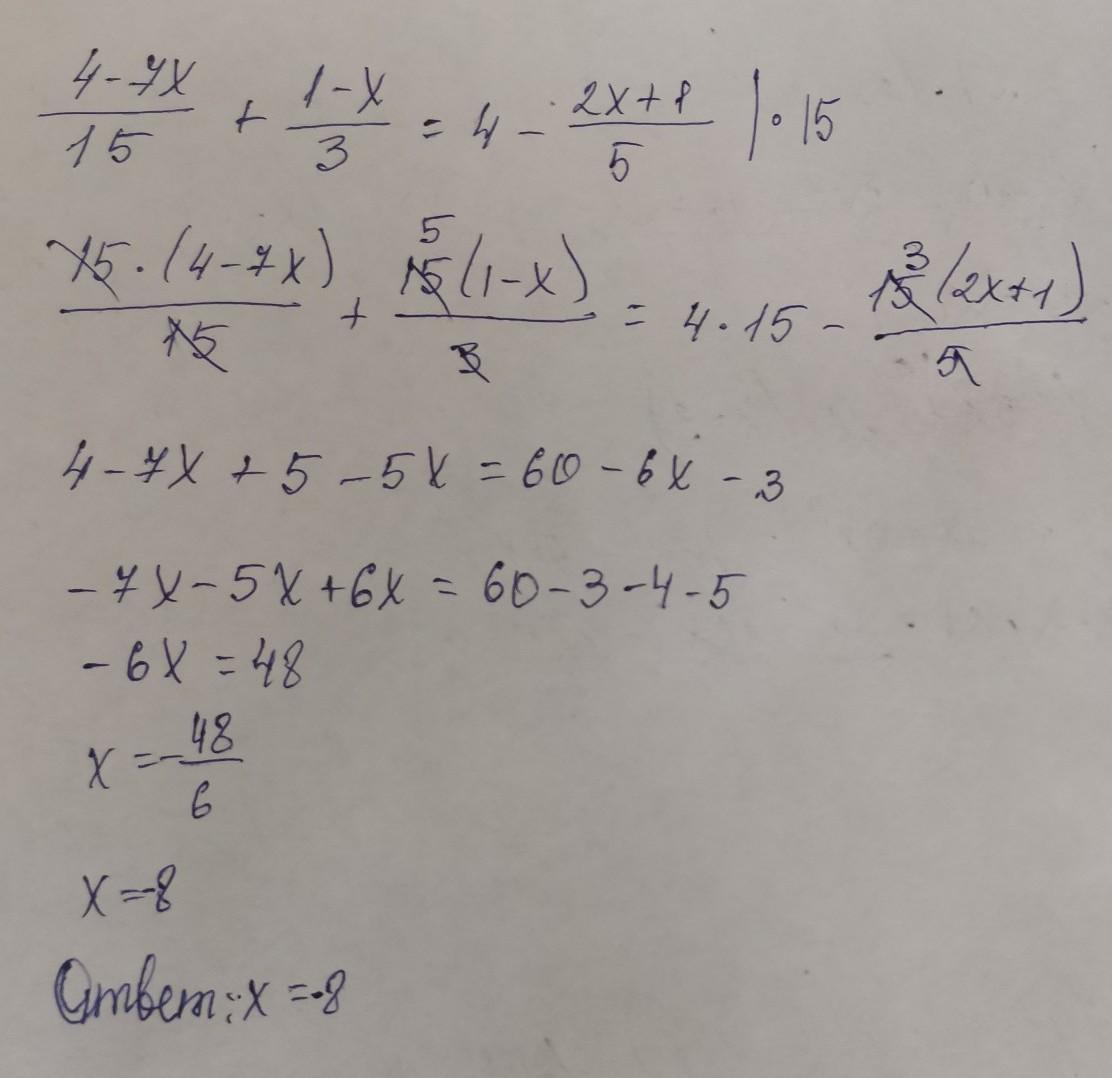 (4-7x)/15 + (1-x)/3 = 4 - (2x+1)/5 |·15
15·(4-7x)/15 + 15(1-x)/3 5 = 4·15 - 15(2x+1)/5 3
4-7x+5-5x=60-6x-3
-7x-5x+6x=60-3-4-5
-6x=48
x=-48/6
x=-8
Ответ: x=-8